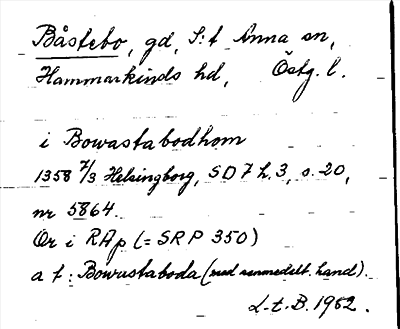 Båstebo, gd, S:t Anna sn,
Hammarkinds hd, Östg. l.
i Bowastabodhom
1358 7/3 Helsingborg, SD 7 h. 3, s. 20,
nr 5864.
Or i RAp (= SRP 350)
a t : Bowastaboda (med senmedelt. hand).
L.t.B. 1962.